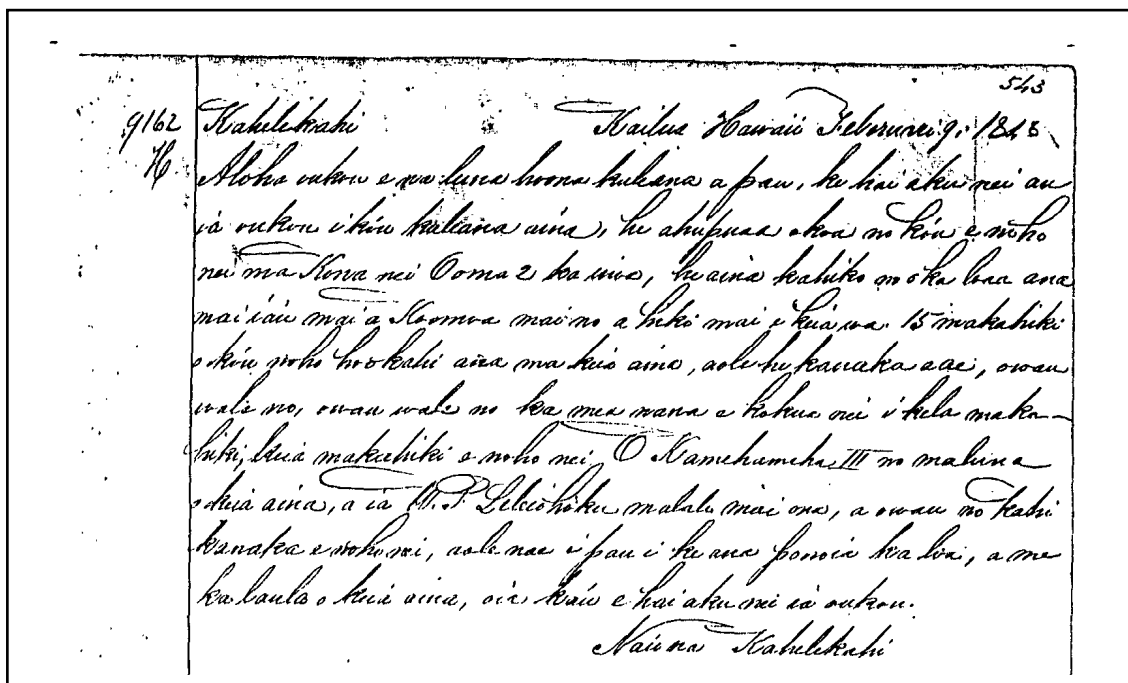 543
9162 Kahelekahi Kailua Hawaii Februari 9. 1848
H Aloha oukou e na luna hoona kuleana a pau, ke hai aku nei au
ia oukou i ko'u kuleana aina, he ahupuaa okoa no ko'u e noho
nei ma Kona nei Ooma 2 ka inoa, he aina kahiko no o ka loaa ana
mai ia'u mai a Koomoa mai no a hiki mai i keia wa. 15 makahiki
o ko'u noho hookahi ana ma keia aina, aole he kanaka e ae, owau
wale no, owau wale no ka mea nana e kokua nei i kela maka-
hiki, keia makahiki e noho nei. O Kamehameha III no maluna
o keia aina, a ia W. P. Leleiohoku malalo mai ona, a owau no kahi
kanaka e noho nei, aole nae i pau i ke ana ponoia ka loa, a me
ka laula o keia aina, oia ka'u e hai aku nei ia oukou.
Na'u na Kahelekahi